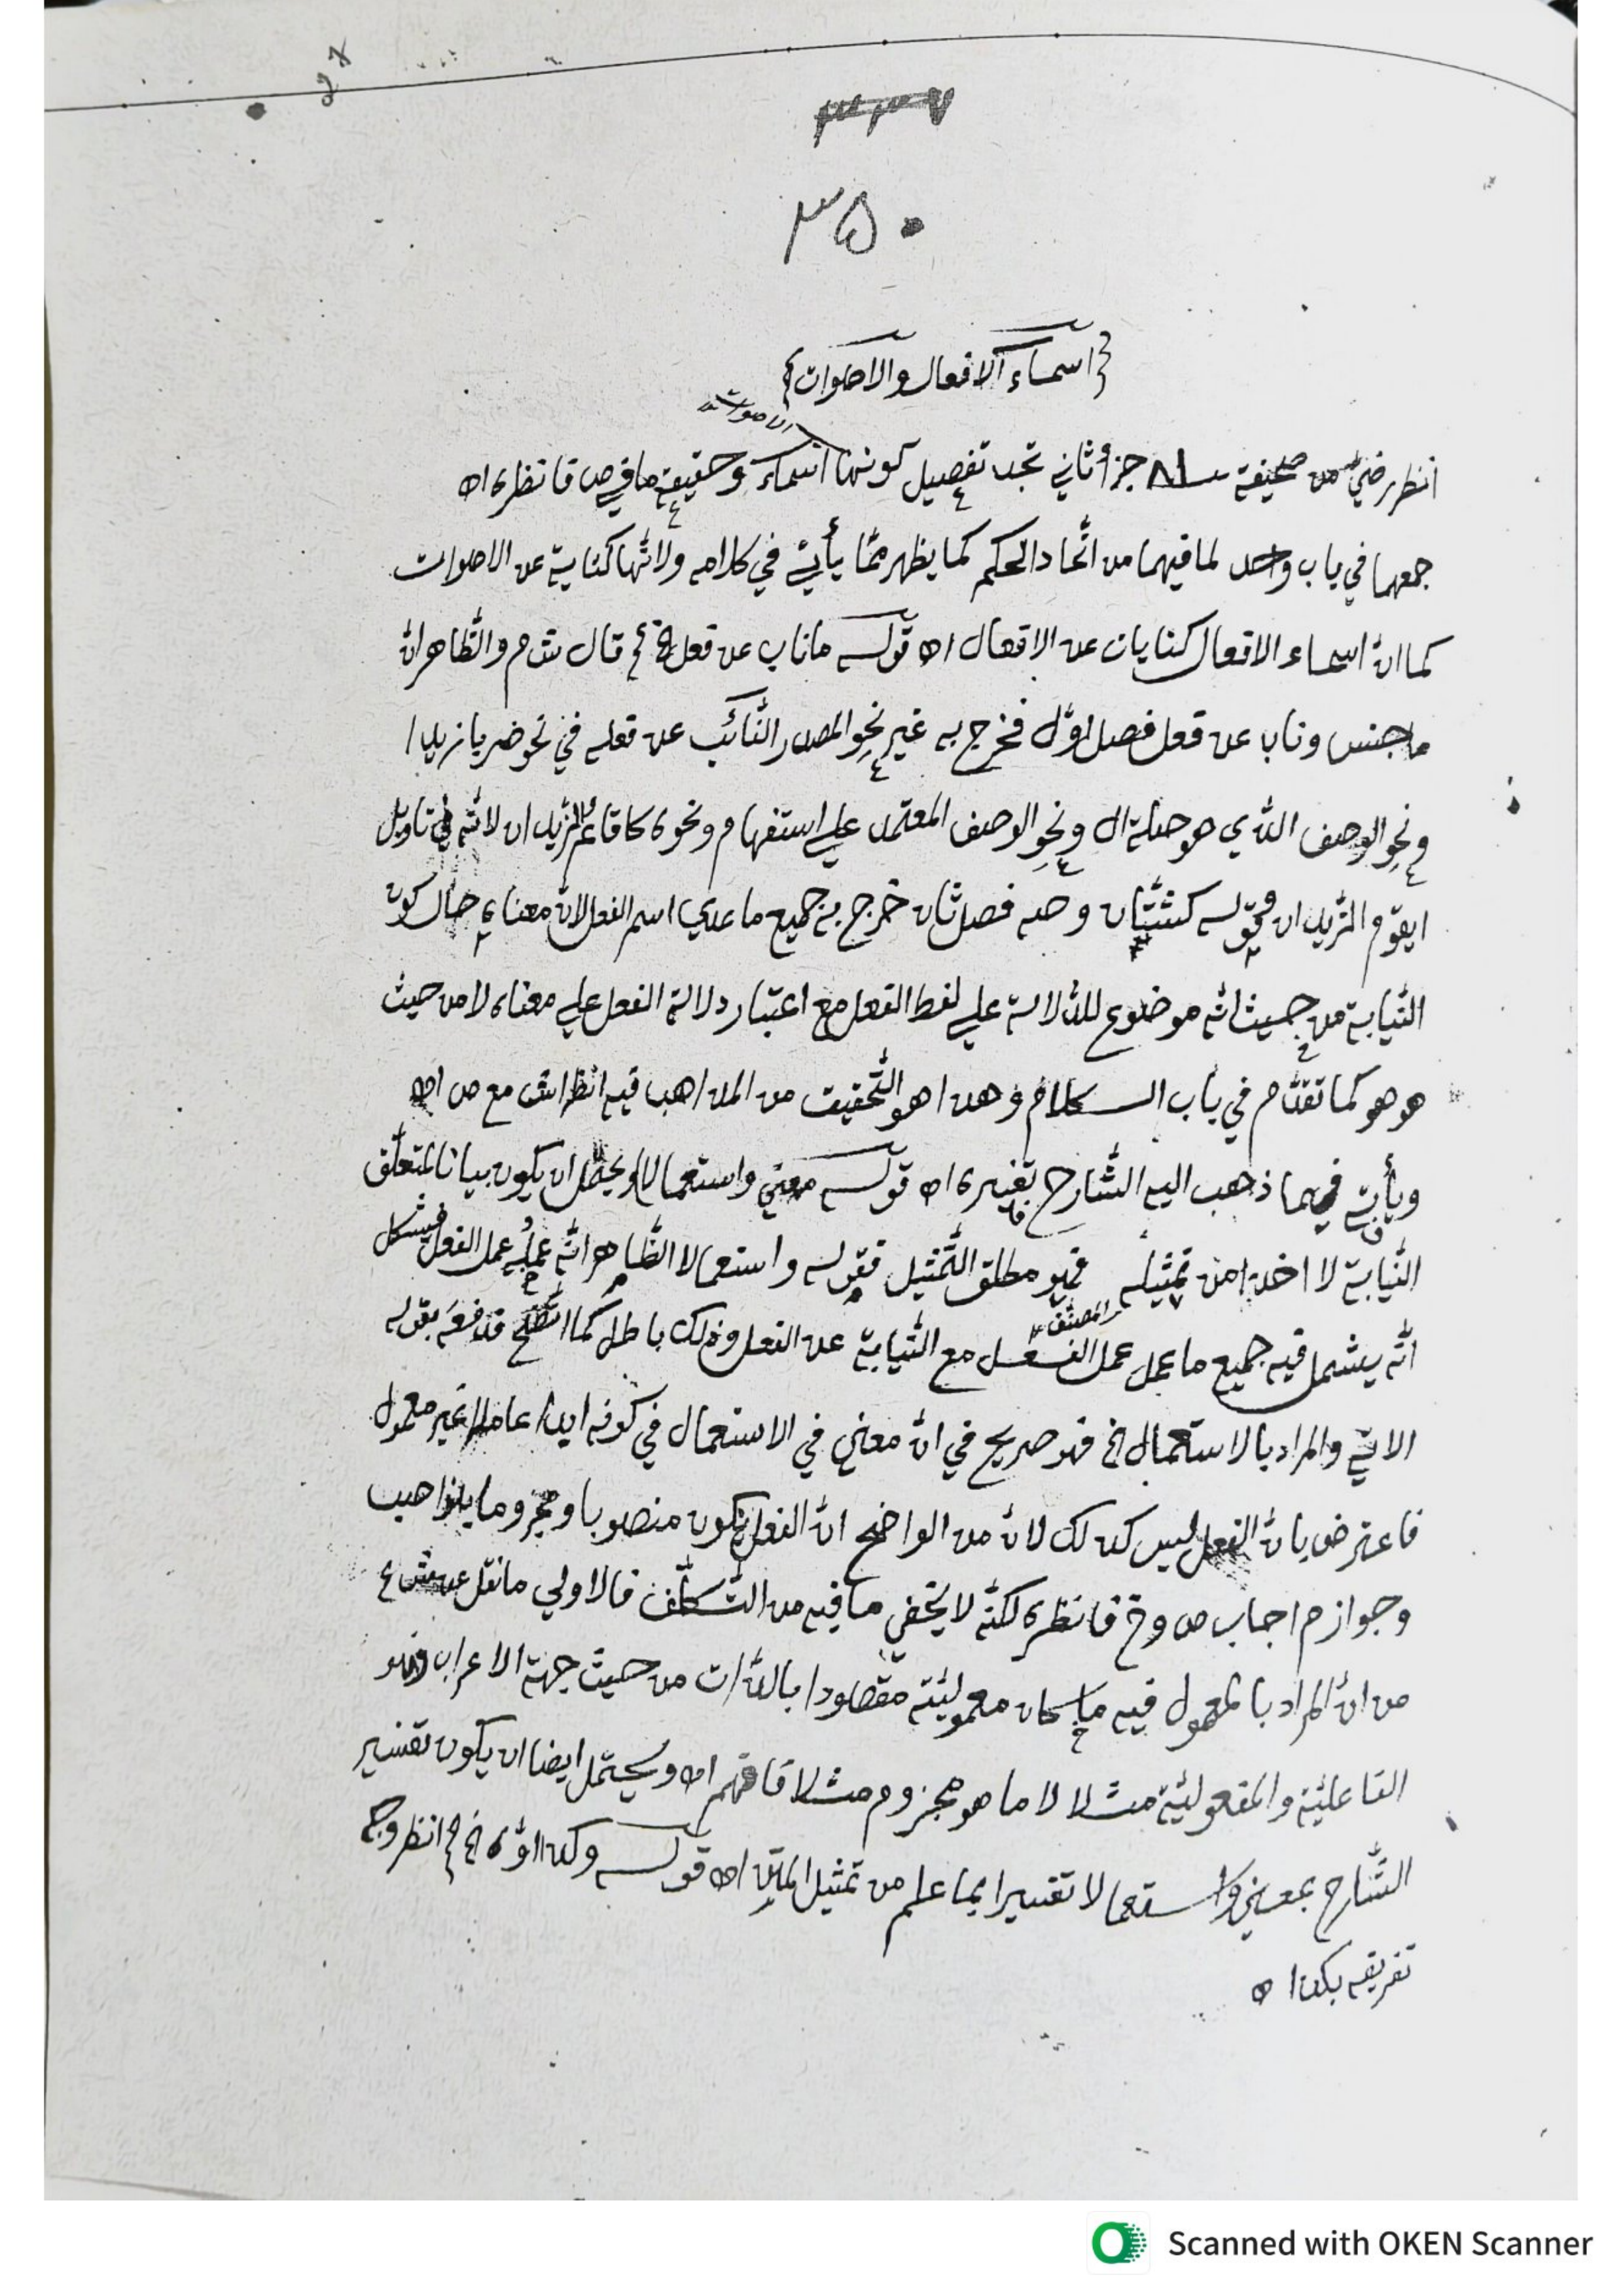 ٣٣٧
٣٥٠
{اسماء الافعال والاصوات}
الاصوات
انظر رضي من صحيفة ٨١ جزأ ثاني تجد تفصيل كونها اسماء وحقيقة ما في ص فانظره اه
جمعهما في باب واحد لما فيهما من اتّحاد الحكم كما يظهر ممّا يأتي في كلامه ولانّها كناية عن الاصوات
كما انّ اسماء الافعال كنايات عن الافعال اه قوله ما ناب عن فعل الخ قال ش م والظّاهر انّ
ما جنس وناب عن فعل فصل اوّل فخرج به غير نحو المصدر النّائب عن فعله في نحو ضربا زيدا
ونحو الوصف الّذي هو صلة ال ونحو الوصف المعتمد علي استفهام ونحوه كاقائم الزّيدان لانّه في تاويل
ايقوم الزّيدان وقوله كشتّان وصه فصل ثان خرج به جميع ما عدي اسم الفعل لانّ معناه حال كون
النّيابة من حيث انّه موضوع للدّلالة علي لفظ الفعل مع اعتبار دلالة الفعل علي معناه لا من حيث
هو هو كما تقدّم في باب الكلام وهذا هو التّحقيق من المذاهب فيه انظر اش مع ص اه
ويأتي فيما ذهب اليه الشّارح تغييره اه قوله معني واستعمالا ويحتمل ان يكون بيانا لمتعلّق
النّيابة لا اخذا من تمثيله فهو مطلق التّمثيل فقوله واستعمالا الظّاهر انّه عمله عمل الفعل فيشكل
المصنّف
انّه يشمل فيه جميع ما عمل عمل الفعل مع النّيابة عن الفعل وذلك باطل كما اتّضح فدفعه بقوله
الاتي والمراد بالاستعمال الخ فهو صريح في انّ معني في الاستعمال في كونه ابدا عاملا غير معمول
فاعترض بانّ الفعل ليس كذلك لانّ من الواضح انّ الفعل يكون منصوبا ومجزوما بنواصب
وجوازم اجاب ص وخ فانظره لكنّه لا يخفي ما فيه من التّكلّف فالاولي ما نقل عن ش ع
من انّ المراد بالمعمول فيه ما كان معموليّته مقصودا بالذّات من حيث جهة الاعراب وهو
الفاعليّة والمفعوليّة مثلا لا ما هو مجزوم مثلا فافهم اه ويحتمل ايضا ان يكون تفسير
الشّارح بمعني واستعمالا تفسيرا بما علم من تمثيل المتن اه قوله وكذا اوّه الخ انظر وجه
تفريقه بكذا اه
Scanned with OKEN Scanner